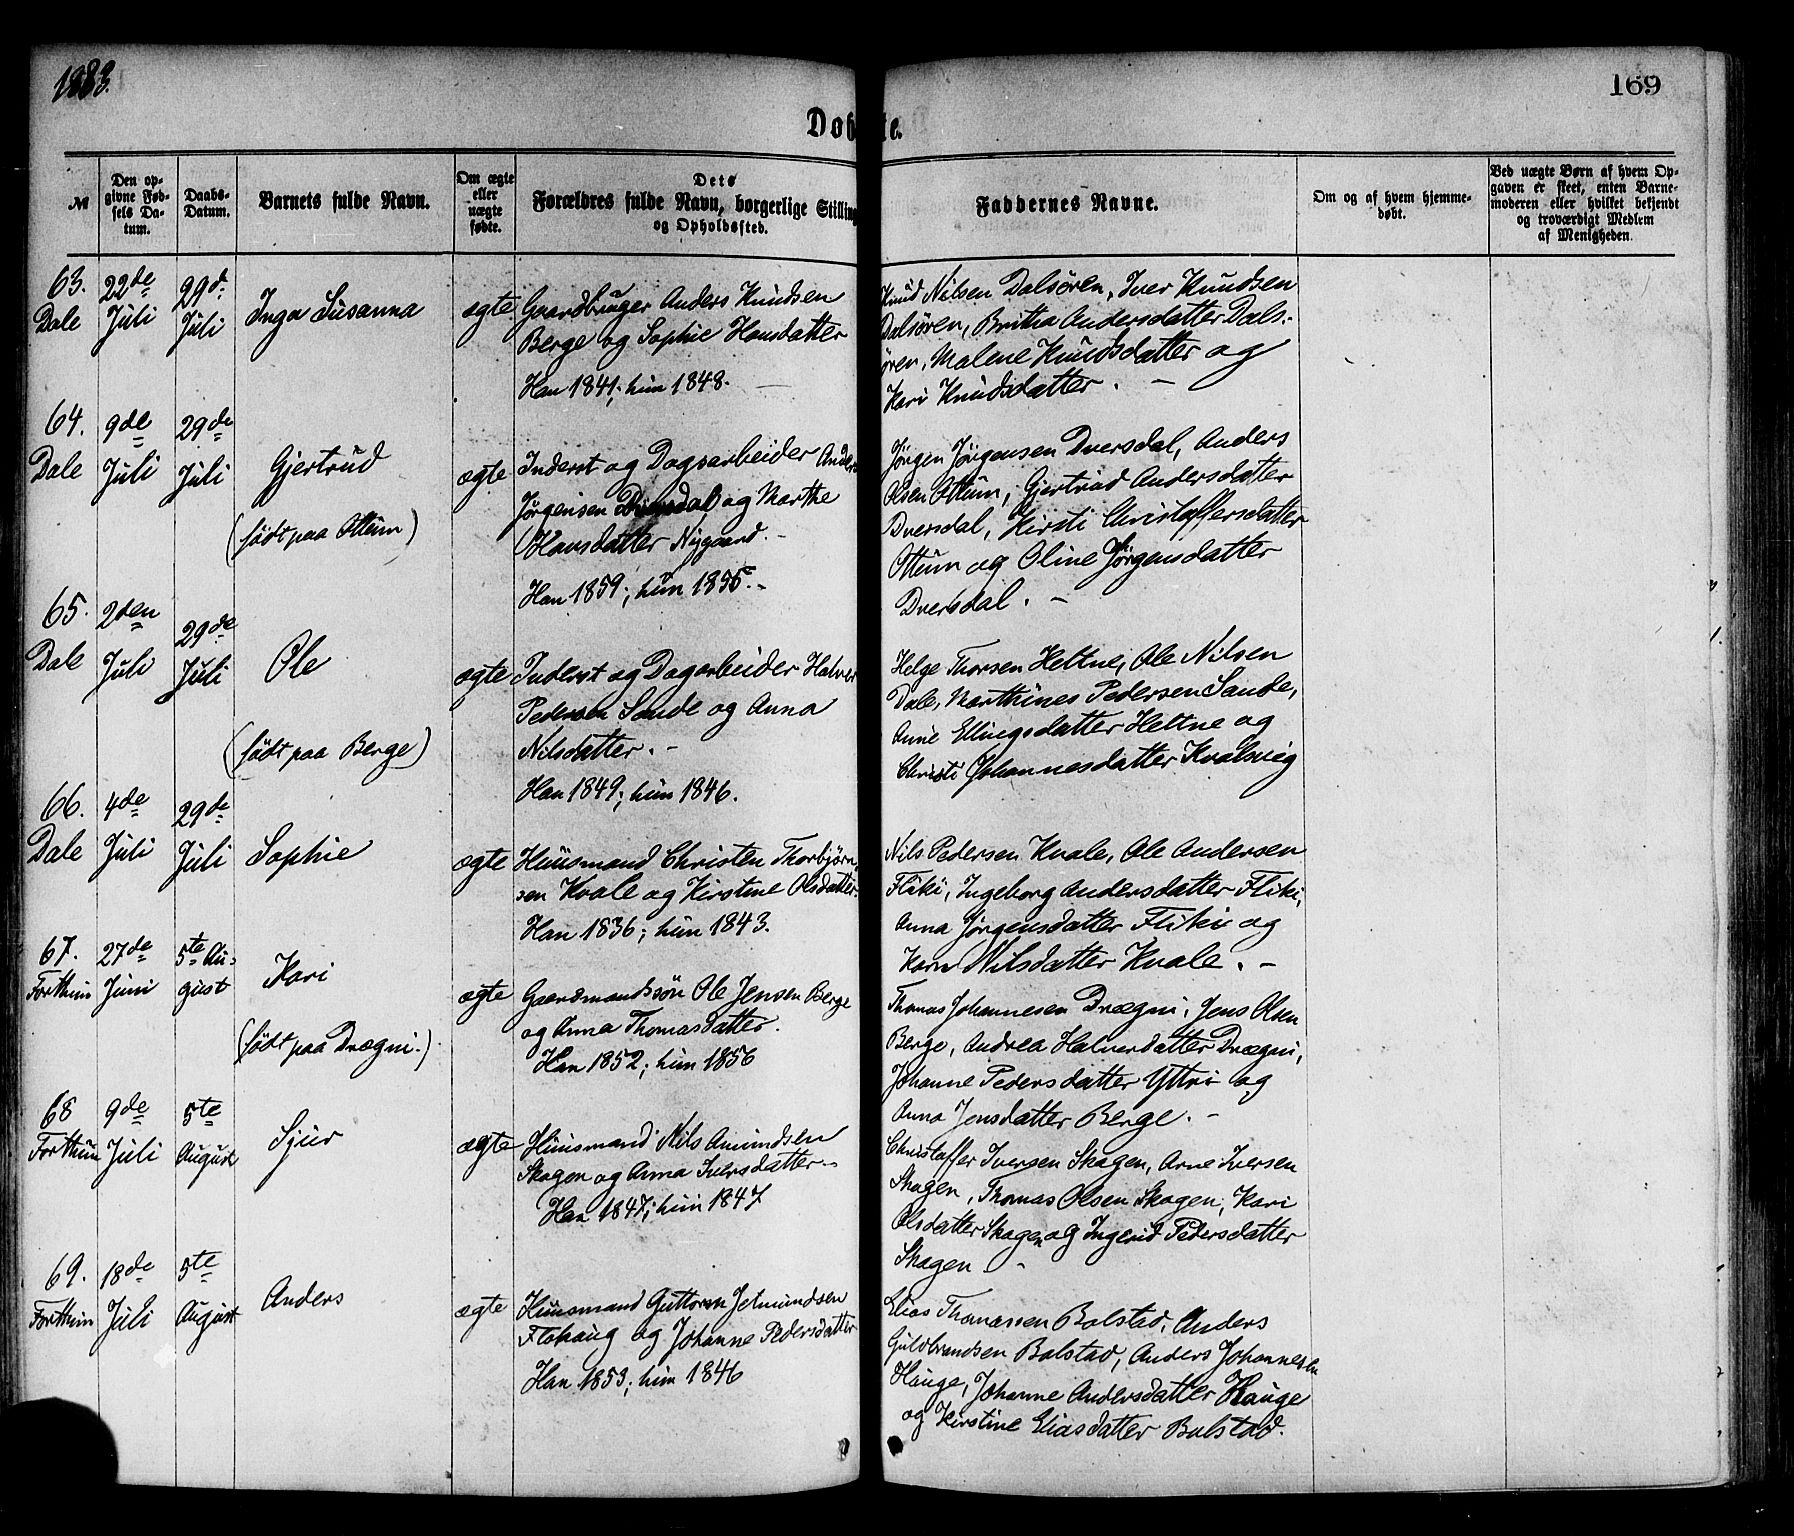 1883.
169
Døbte.
№
Den op-
givne Fød-
sels Da-
tum.
Daabs-
Datum.
Barnets fulde Navn.
Om ægte
eller
uægte
fødte.
Dets
Forældres fulde Navn, borgerlige Stilling
og Opholdssted.
Faddernes Navne.
Om og af hvem hjemme-
døbt.
Ved uægte Børn af hvem Op-
gaven er skeet, enten Barne-
moderen eller hvilket bekjendt
og troværdigt Medlem
af Menigheden.
63. 22de 29de
Dale Juli Juli Inga Susanna ægte Gaardbruger Anders Knudsen
Berge og Sophie Hansdatter
Han 1841; hun 1848.
Knud Nilsen Dalsøren, Iver Knudsen
Dalsøren, Britha Andersdatter Dals-
øren, Malene Knudsdatter og
Kari Knudsdatter. –
64. 9de 29de
Dale Juli Juli Gjertrud
(født paa Ottum)
ægte Inderst og Dagsarbeider Anders
Jørgensen Dversdal og Marthe
Hansdatter Nygaard. –
Han 1859; hun 1855. –
Jørgen Jørgensen Dversdal, Anders
Olsen Ottum, Gjertrud Andersdatter
Dversdal, Kirsti Christoffersdatter
Ottum og Oline Jørgensdatter
Dversdal. –
65. 2den 29de
Dale Juli Juli Ole
(født paa Berge)
ægte Inderst og Dagarbeider Halvor
Pedersen Sande og Anna
Nilsdatter. –
Han 1849; hun 1846.
Helge Thorsen Heltne, Ole Nilsen
Dale, Marthines Pedersen Sande,
Anne Ellingsdatter Heltne og
Christi Johannesdatter Kvalsvig
66. 4de 29de
Dale Juli Juli Sophie
ægte Huusmand Christen Thorbjørn-
sen Kvale og Kirstine Olsdatter.
Han 1836; hun 1843.
Nils Pedersen Kvale, Ole Andersen
Fliki, Ingeborg Andersdatter Fliki,
Anna Jørgensdatter Fliki og
Karn Nilsdatter Kvale. –
67. 27de 5te Au-
Forthun Juni gust Kari
(født paa Drægni.)
ægte Gaardmandssøn Ole Jensen Berge
og Anna Thomasdatter.
Han 1852; hun 1856
Thomas Johannesen Drægni, Jens Olsen
Berge, Andrea Halverdatter Drægni,
Johanne Pedersdatter Yttri og
Anna Jensdatter Berge. –
68 9de 5te
Forthun Juli August Sjur
ægte Huusmand Nils Amundsen
Skagen og Anna Iversdatter. –
Han 1847; hun 1847
Christoffer Iversen Skagen, Arne Iversen
Skagen, Thomas Olsen Skagen, Kari
Olsdatter Skagen og Ingerid Pedersdatter
Skagen –
69. 18de 5te
Forthun Juli August Anders
ægte Huusmand Guttorm Jetmundsen
Flohaug og Johanne Pedersdatter
Han 1853; hun 1846
Elias Thomassen Bolstad, Anders
Guldbrandsen Bolstad, Anders Johannesen
Hauge, Johanne Andersdatter Hauge
og Kirstine Eliasdatter Bolstad.